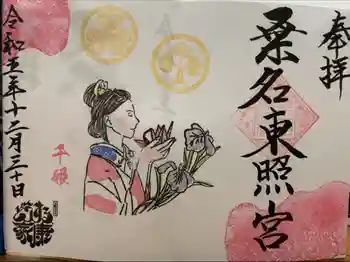 奉拝
桑名東照宮
千姫
令和五年十二月三十日